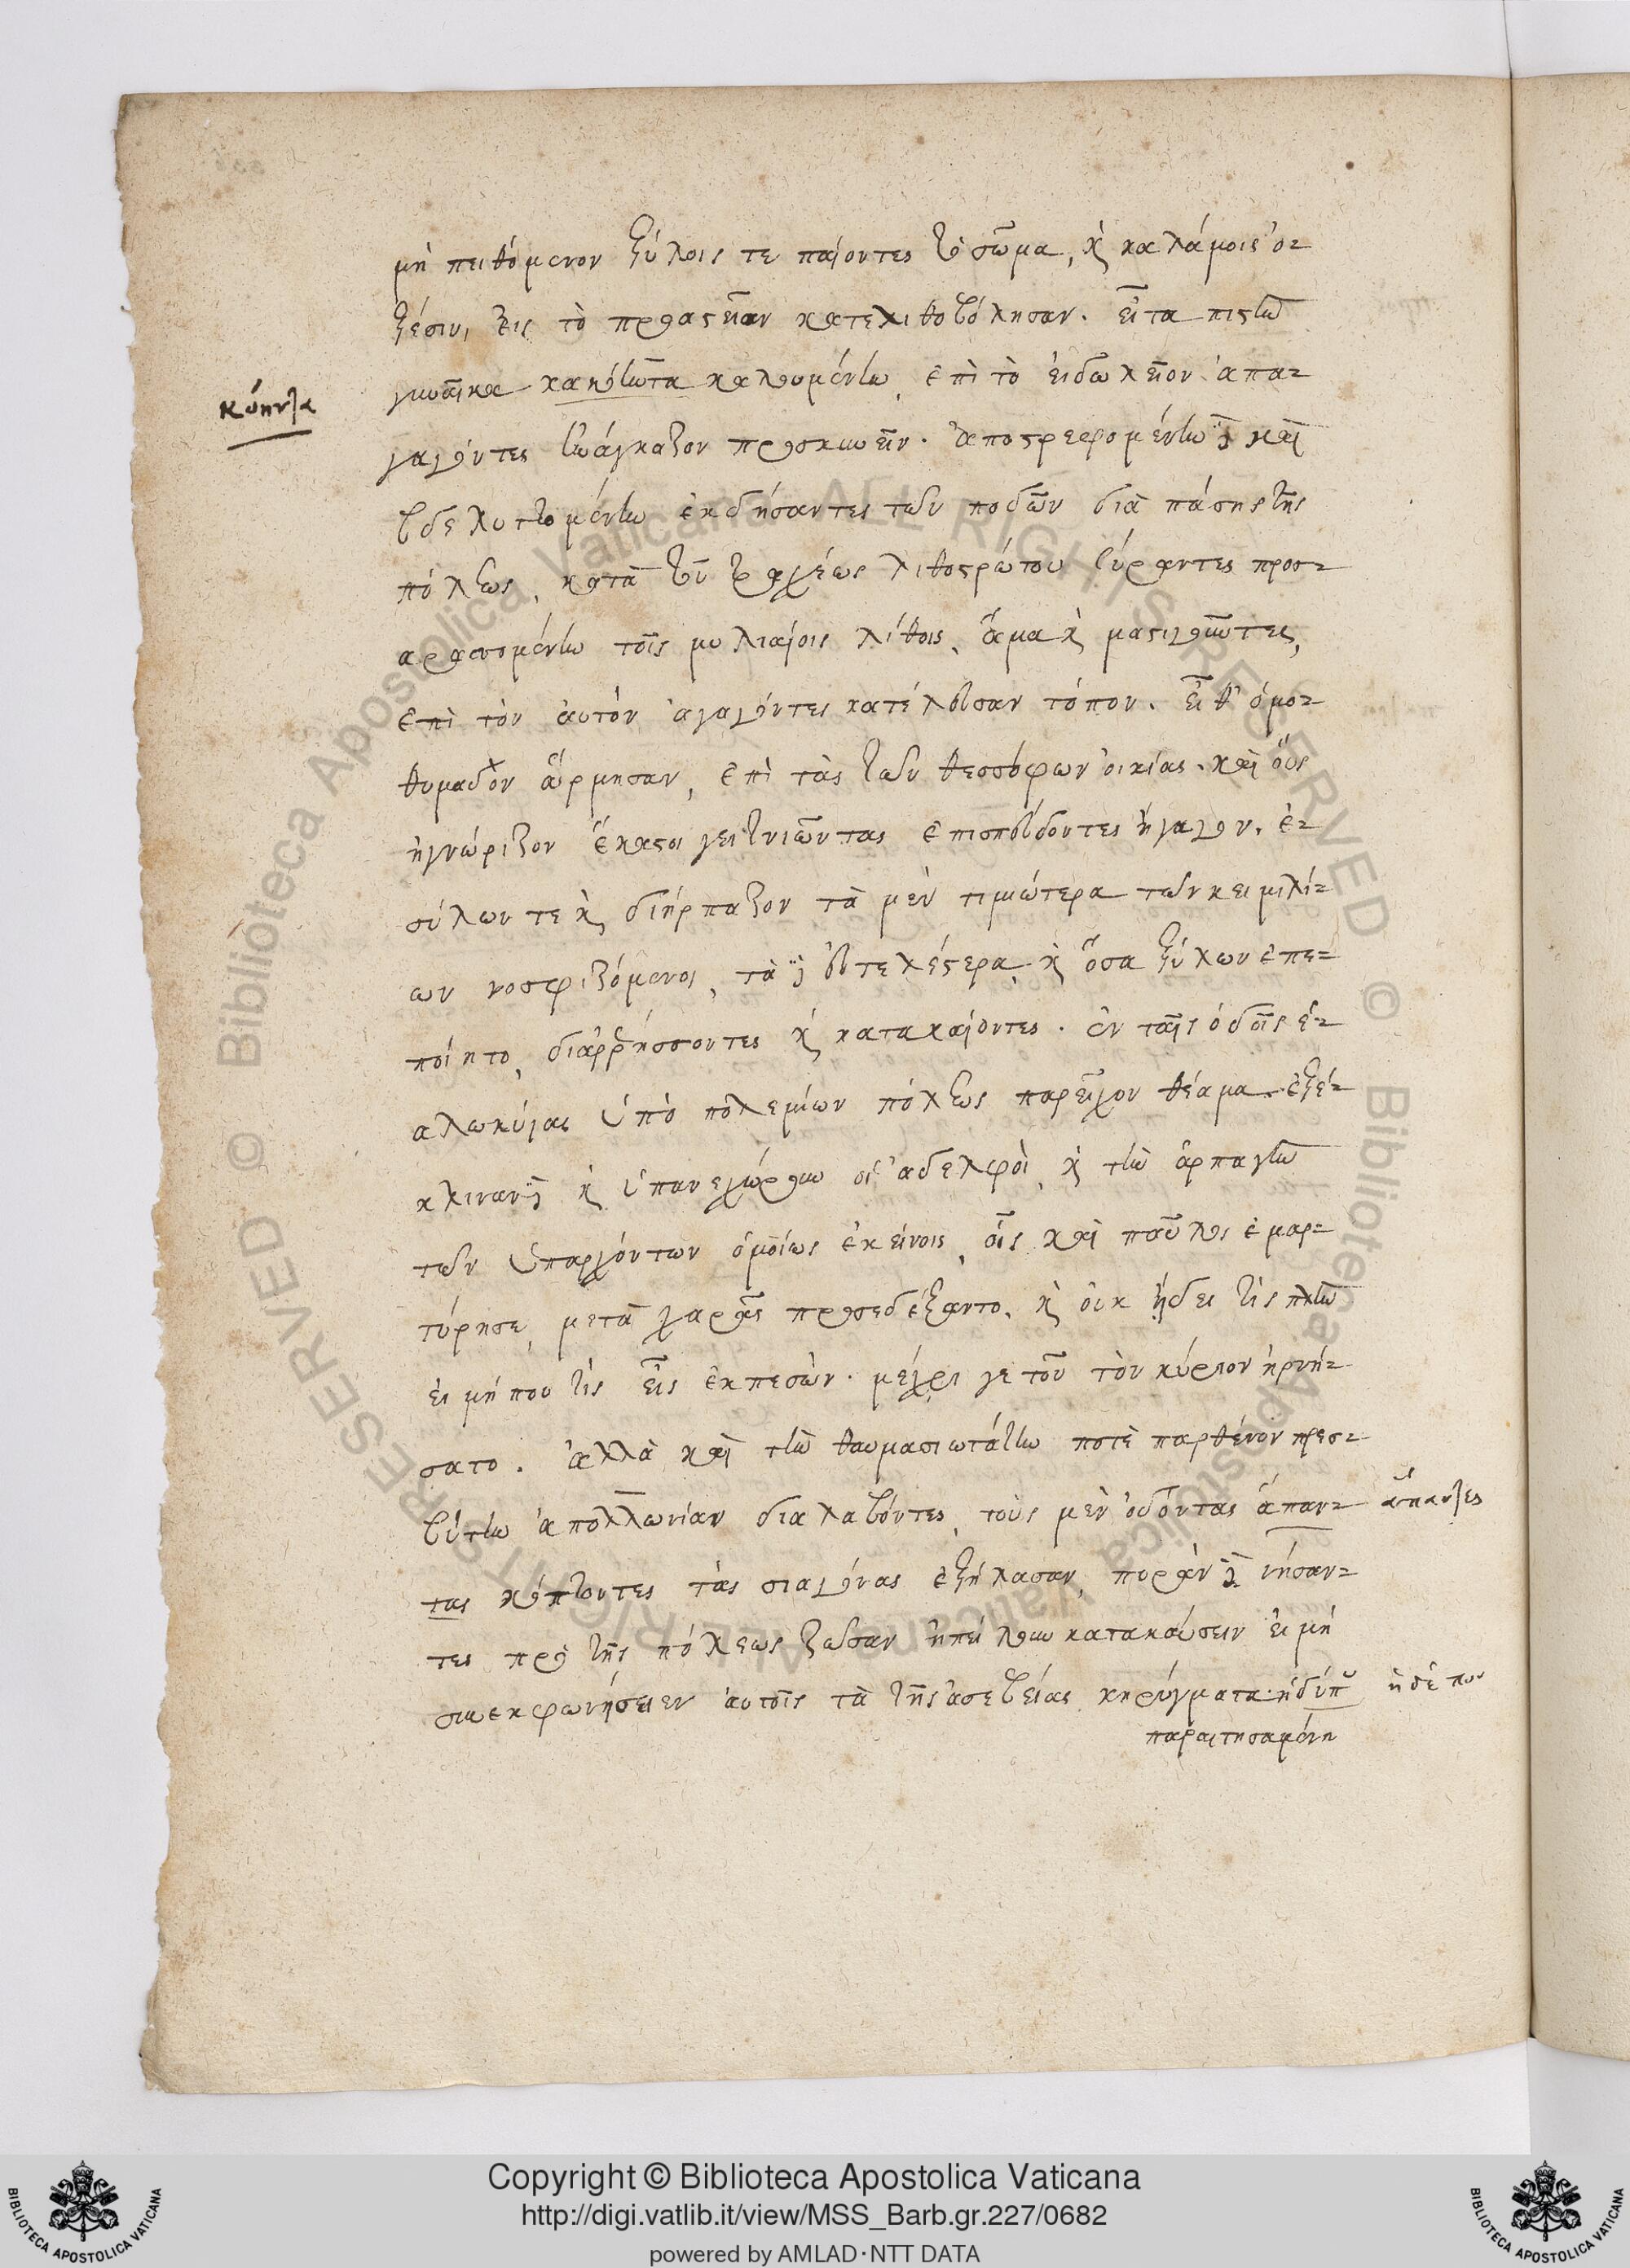 μὴ πειθόμενον ξύλοις τε παίοντες τὸ σῶμα, ϗ καλάμοις ὀ=
ξέσιν, εἰς τὸ προαςεῖαν κατελιθοβόλησαν. εἶτα πιςὴν
κόιντα
γυναῖκα κακόϊωτα καλουμένην, ἐπὶ τὸ εἰδωλεῖον ἀπα=
γαγόντες ἠνάγκαζον προσκυνεῖν. ἀποςρεφομένην δὲ καὶ
βδελυττομένην ἐκδήσαντες τῶν ποδῶν διὰ πάσης τῆς
πόλεως, κατὰ τοῦ τραχέως λιθοςρώτου σύραντες προσ=
αρασσομένην τοῖς μυλιαίοις λίθοις, ἅμα ϗ μαςιγοῦντες,
ἐπὶ τὸν αὐτὸν ἀγαγόντες κατέλευσαν τόπον. εἶθ' ὁμο=
θυμαδὸν ὥρμησαν, ἐπὶ τὰς τῶν θεοσόφων οἰκίας. καὶ οὓς
ἠγνώριζον ἕκαςοι γειτνιῶντας ἐπισπεύδοντες ἤγαγον. ἐ=
σύλων τε ϗ διήρπαζον τὰ μὲν τιμιώτερα τῶν κειμιλί=
ων νοσφιζόμενοι, τὰ δὲ εὐτελέςερα, ϗ ὅσα ξύλων ἐπε=
ποίητο, διαῤῥήσσοντες ϗ κατακαίοντες. ἐν ταῖς ὁδοῖς ἑ=
αλωκύιας ὑπὸ πολεμίων πόλεως παρεῖχον θέαμα. ἐξέ=
κλιναν δὲ ϗ ὑπανεχώρουν οἱ ἀδελφοὶ, ϗ τὴν ἁρπαγὴν
τῶν ὑπαρχόντων ὁμοίως ἐκείνοις, οἷς καὶ παῦλος ἐμαρ=
τύρησε, μετὰ χαρᾶς προσεδέξαντο. ϗ οὐκ ᾔδει τὶς πλὴν
εἰ μή που τὶς εἷς ἐκπεσὼν. μέχρι γε τοῦ τὸν κύριον ἠρνή=
σατο. ἀλλὰ καὶ τὴν θαυμασιωτάτην ποτὲ παρθένον πρεσ=
βύτιν ἀπολλωνίαν διαλαβόντες, τοὺς μὲν ὀδόντας ἅπαν= ἅπαντες
τας κόπτοντες τὰς σιαγόνας ἐξήλασαν, πυρὰν δὲ νήσαν=
τες πρὸ τῆς πόλεως ζῶσαν ἠπείλουν κατακαύσειν εἰ μὴ
συνεκφωνήσειεν αὐτοῖς τὰ τῆς ἀσεβείας κηρύγματα. ἡδύπου ἡ δέ που
παραιτησαμένη